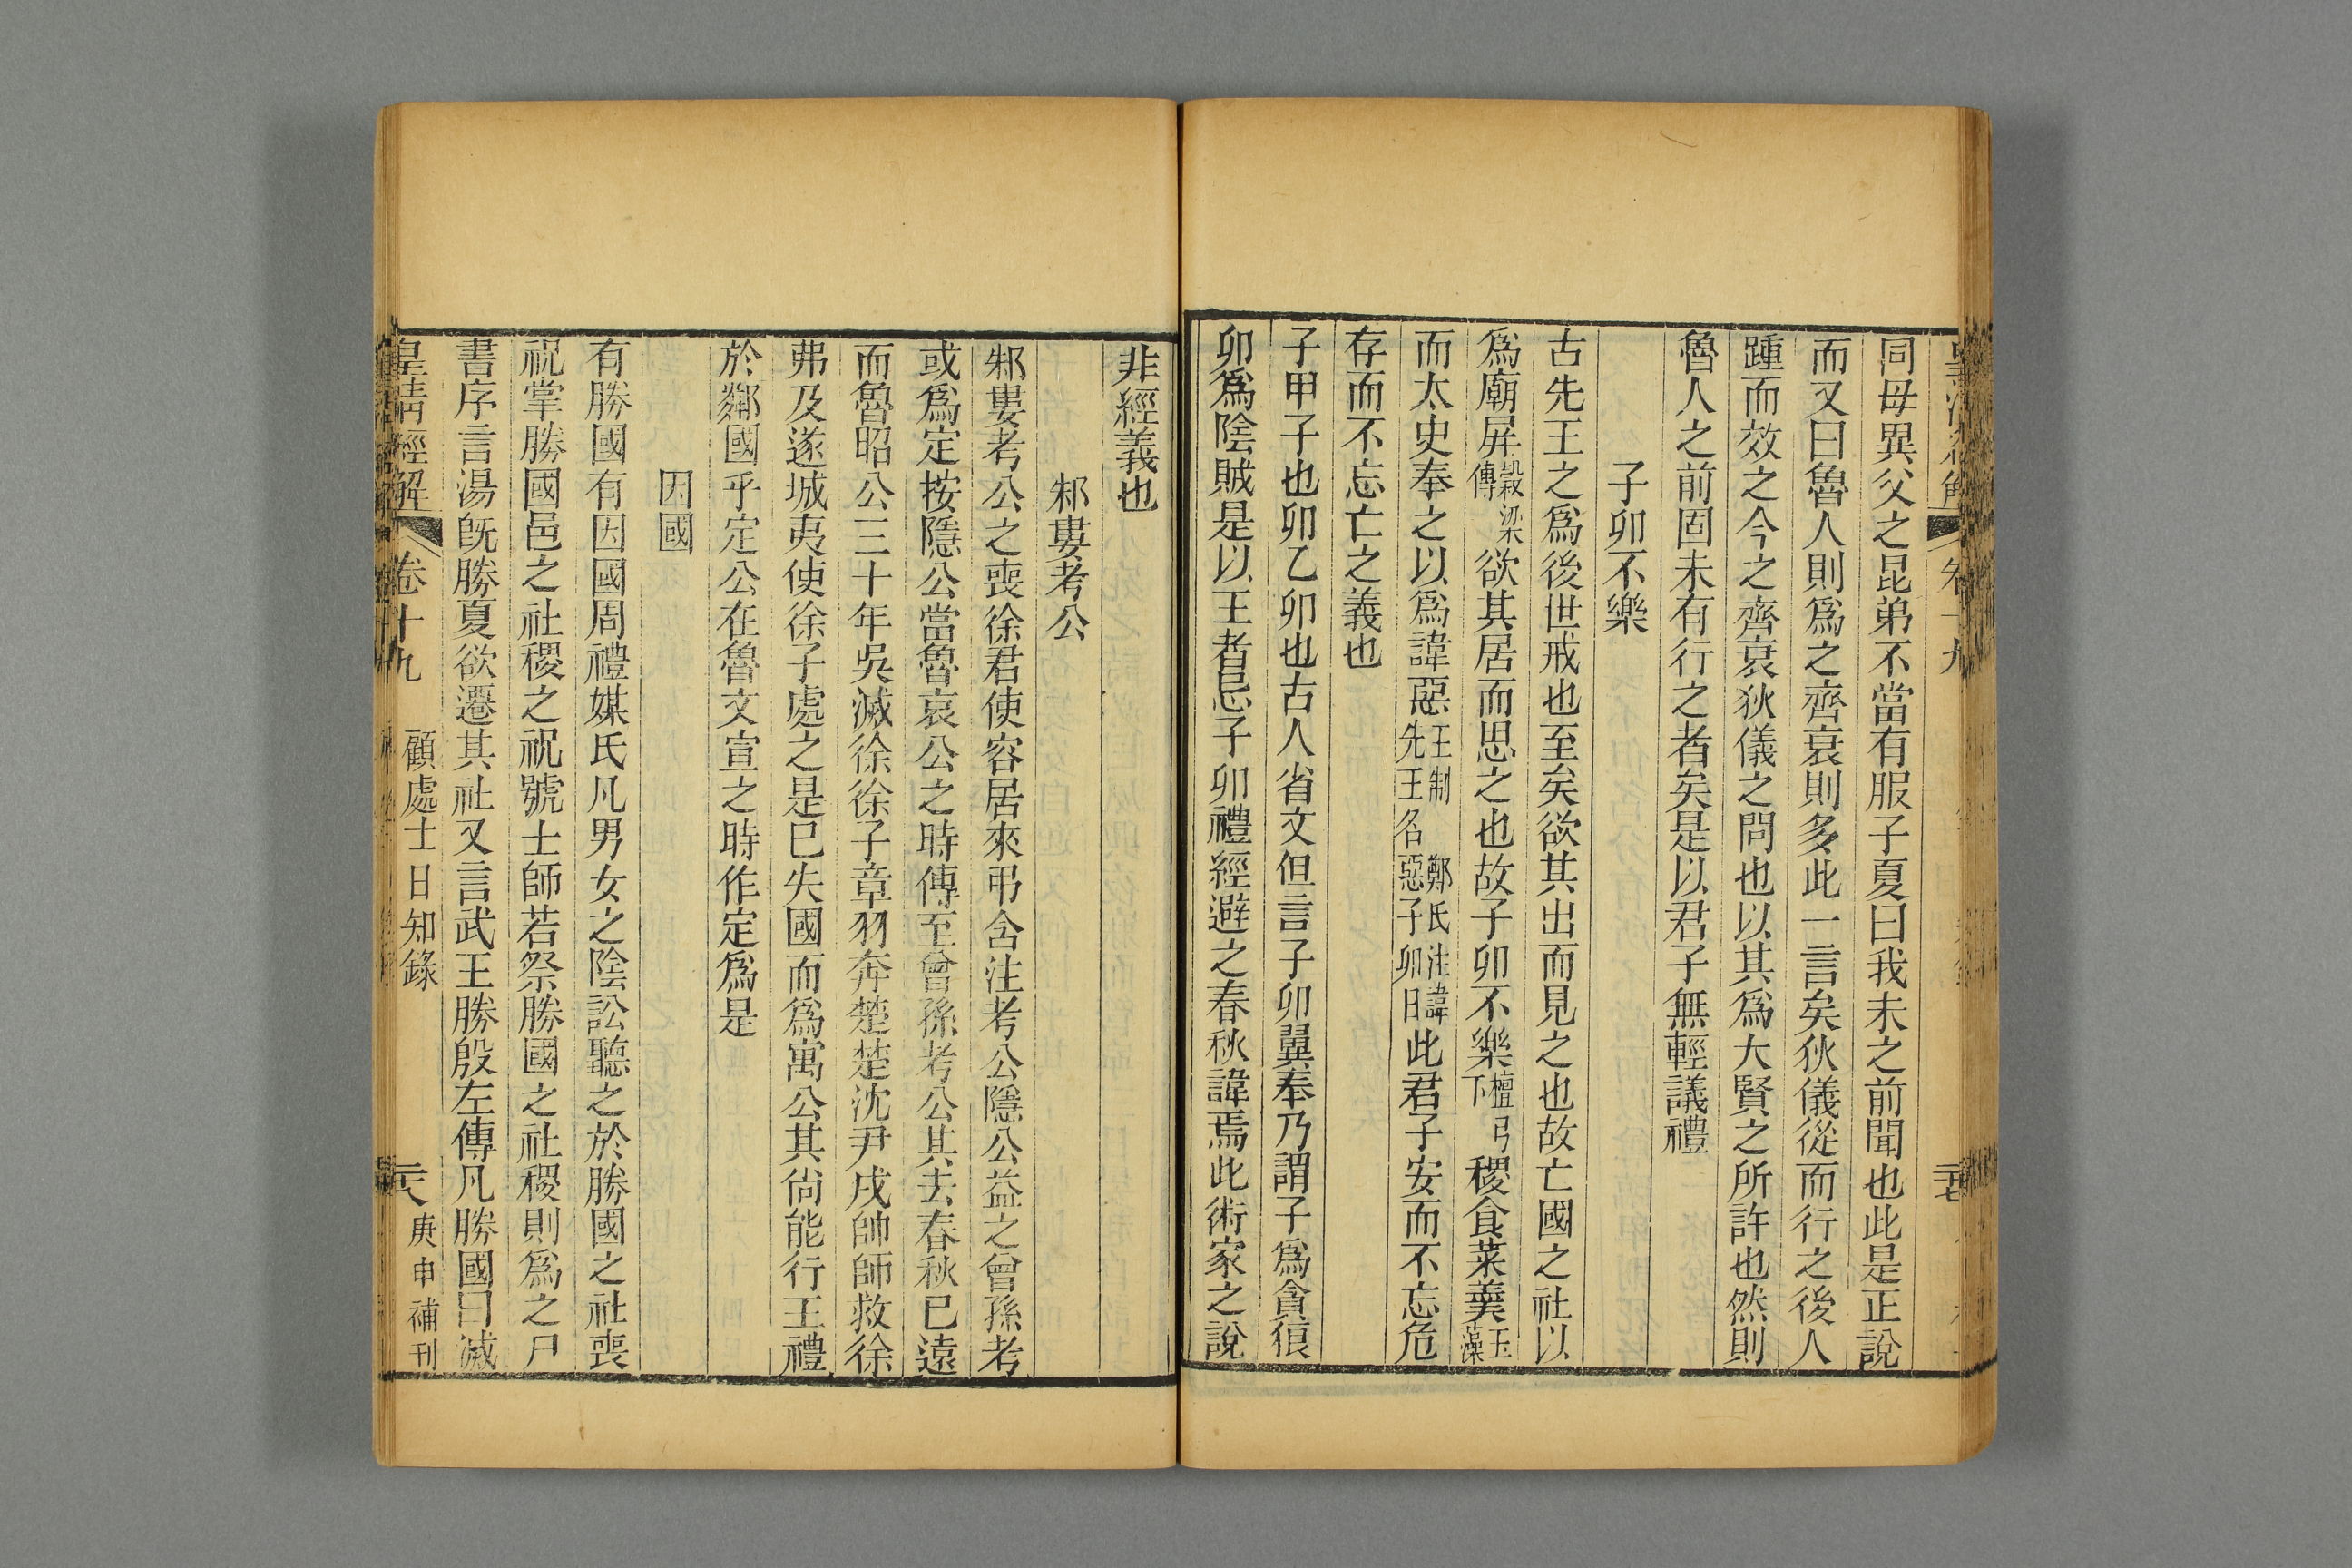 同母異父之昆弟不當有服子夏曰我未之前聞也此是正說
而又曰魯人則爲之齊衰則多此一言矣狄儀從而行之後人
踵而效之今之齊衰狄儀之問也以其爲大賢之所許也然則
魯人之前固未有行之者矣是以君子無輕議禮
子卯不樂
古先王之爲後世戒也至矣欲其出而見之也故亡國之社以
爲廟屏穀梁傳欲其居而思之也故子卯不樂檀弓下稷食菜羹玉藻
而太史奉之以爲諱惡王制鄭氏注諱先王名惡子卯日此君子安而不忘危
存而不忘亡之義也
子甲子也卯乙卯也古人省文但言子卯翼奉乃謂子爲貪狼
卯爲陰賊是以王者忌子卯禮經避之春秋諱焉此術家之說
非經義也
邾婁考公
邾婁考公之喪徐君使容居來弔含注考公隱公益之曾孫考
或爲定按隱公當魯哀公之時傳至曾孫考公其去春秋已遠
而魯昭公三十年吳滅徐徐子章羽奔楚楚沈尹戌帥師救徐
弗及遂城夷使徐子處之是已失國而爲寓公其尙能行王禮
於鄰國乎定公在魯文宣之時作定爲是
因國
有勝國有因國周禮媒氏凡男女之陰訟聽之於勝國之社喪
祝掌勝國邑之社稷之祝號士師若祭勝國之社稷則爲之尸
書序言湯旣勝夏欲遷其社又言武王勝殷左傳凡勝國曰滅
皇淸經解 卷十九 顧處士日知錄 二十八 庚申補刊